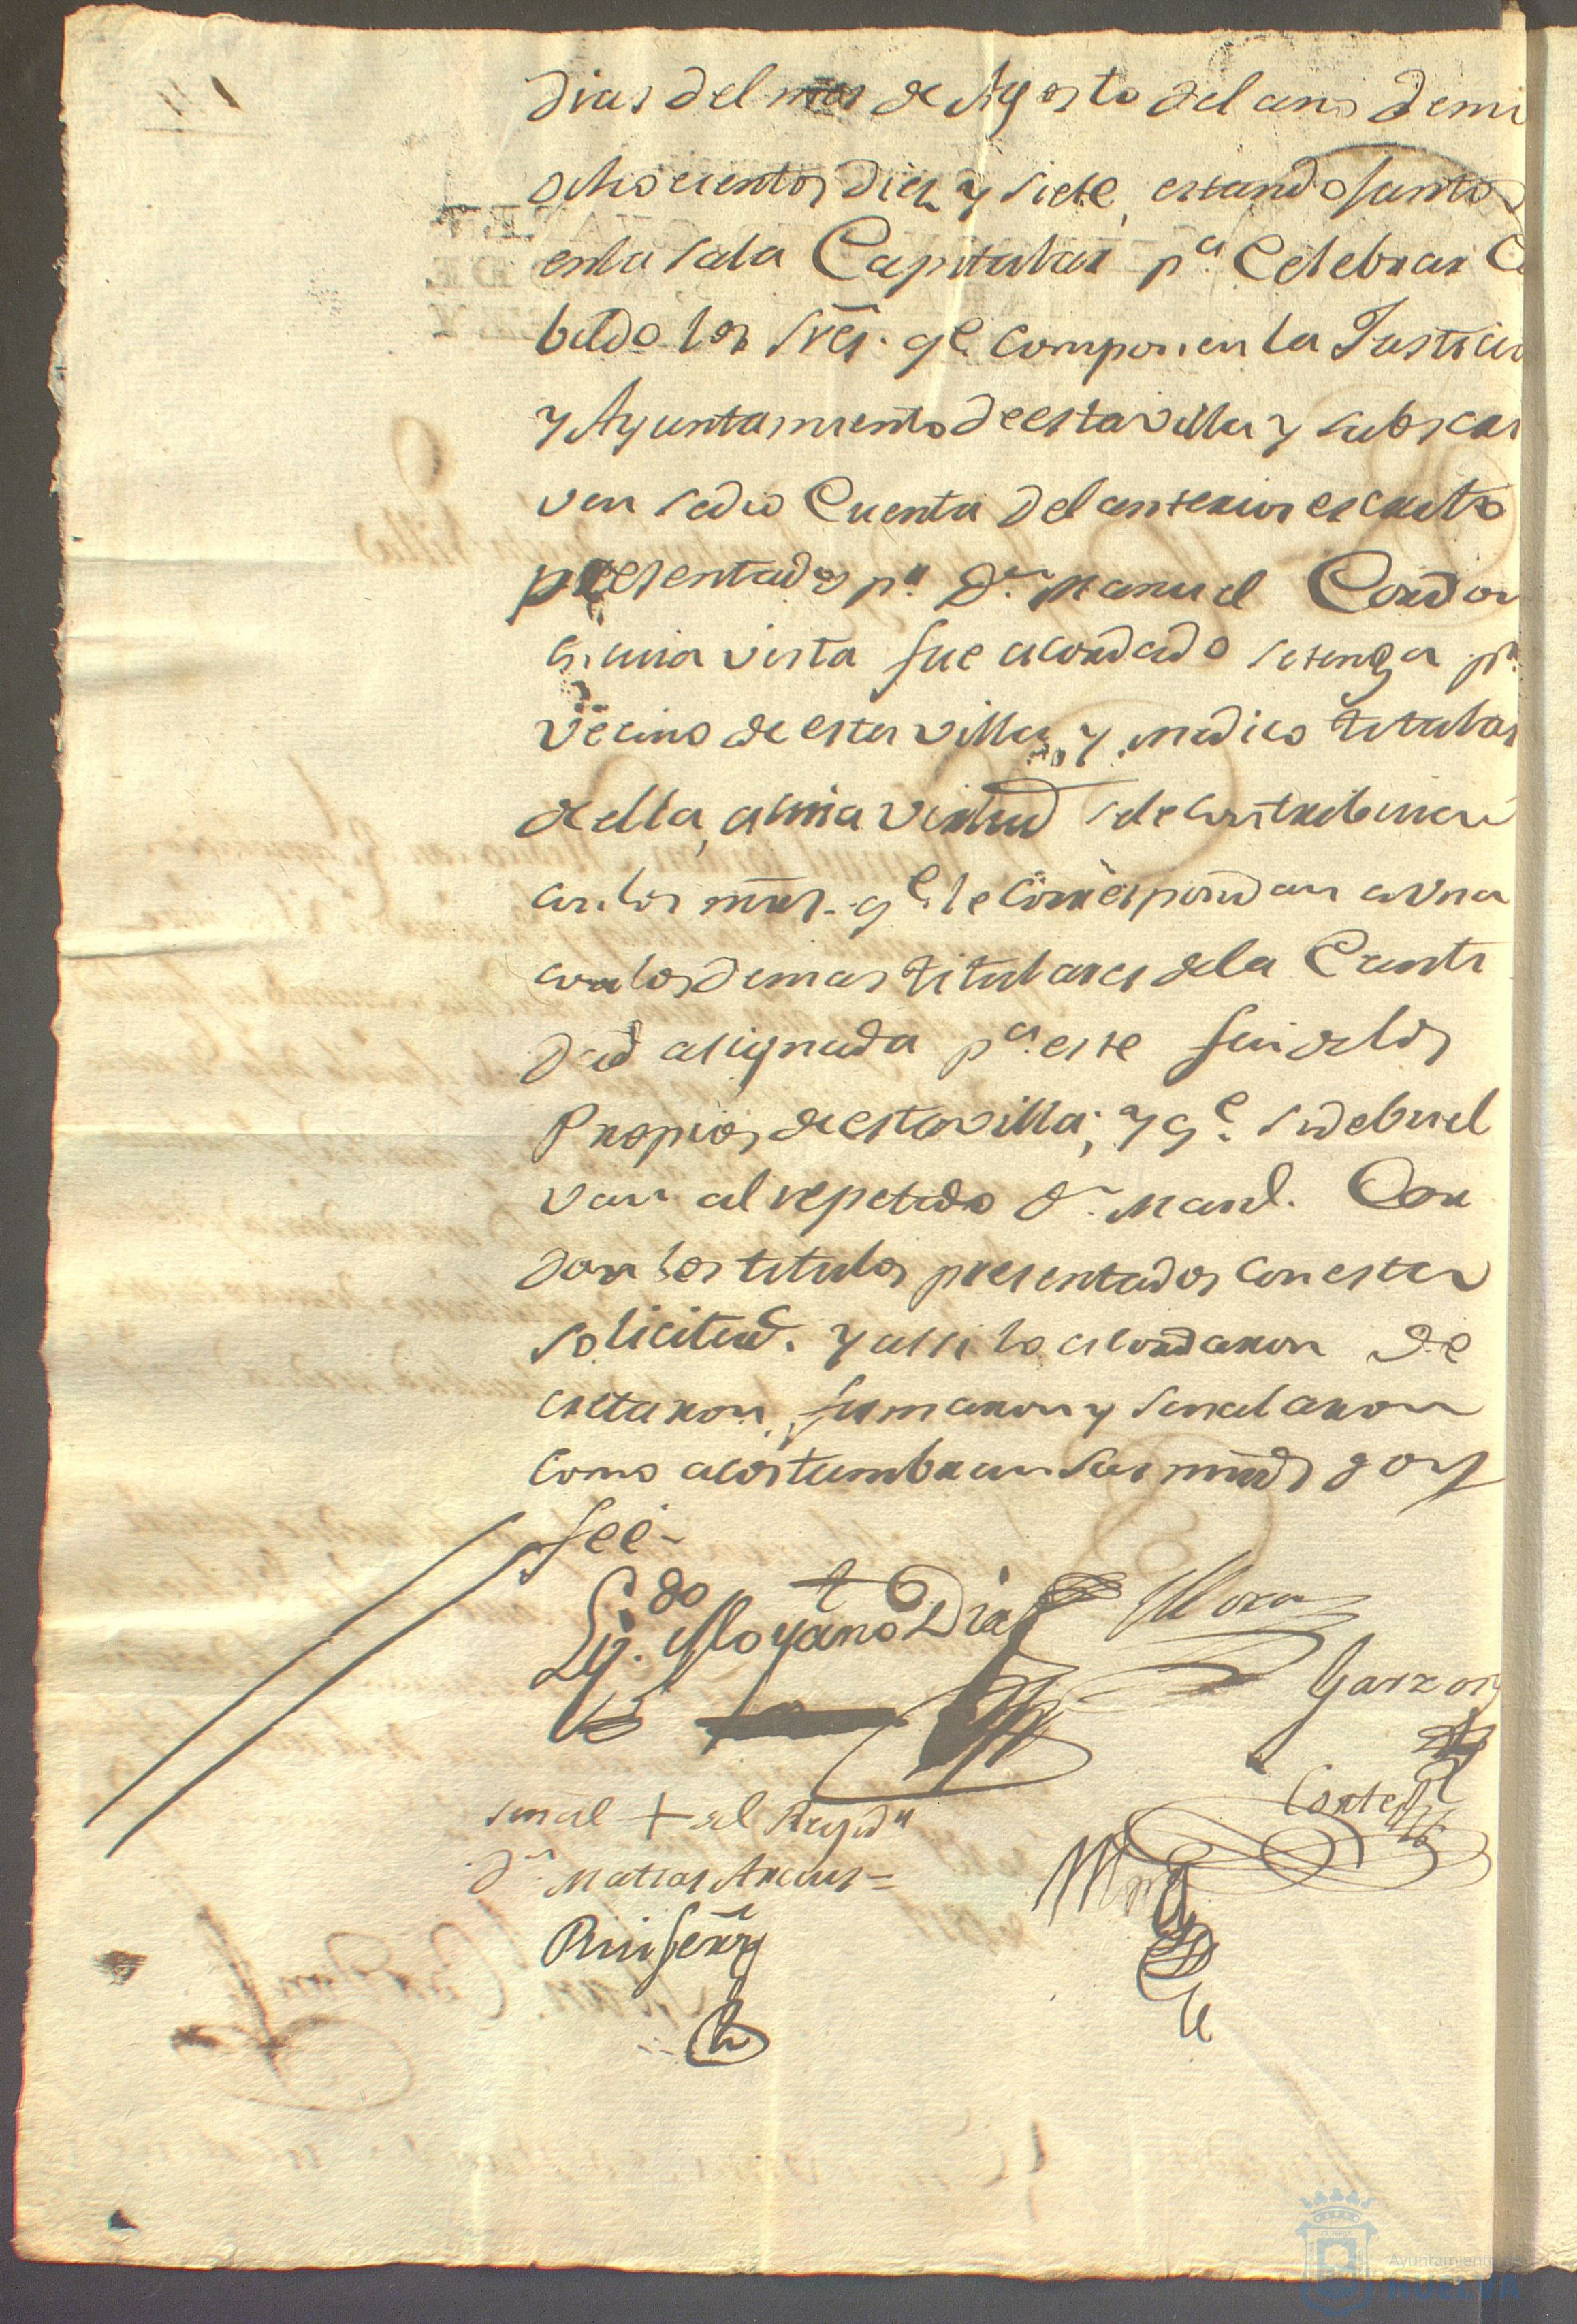 dias del mes de Agosto del año de mi
ochocientos diez y siete, estando juntos
en la sala Capitular pª Celebrar Ca
bildo los Sres. qe componen la Justicia
y Ayuntamiento de esta villa y subscri
ven se dio Cuenta del anterior escrito
presentado pr Dn Manuel Cordon
a cuia vista fue acordado se tenga pr
vecino de esta villa, y medico titular
de ella, a cuia virtud se le contribuira
con los mrs. qe le correspondan a una
con los demas titulares de la Canti
dad asignada pª este fin de los
Propios de esta villa; y qe se debuel
van al repetido Dn Manl. Cor
don los titulos presentados con esta
solicitud. Y assi lo acordaron de
cretaron, firmaron y señalaron
como acostumbran sus mrds doy
feé-
Lizdo Moyano Diaz Mora
Garzon
Señal + del Regidr
Dn Matias Arcus=
Cortes
Ruifernz